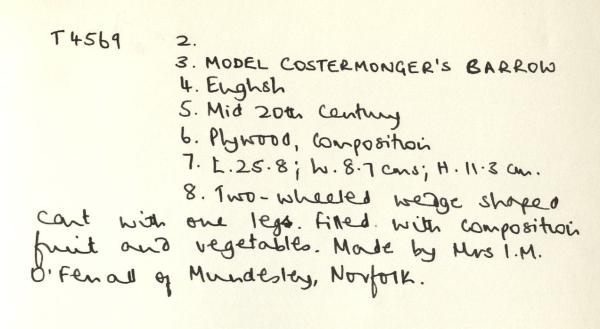 T4569 2.
3. MODEL COSTERMONGER'S BARROW
4. English
5. Mid 20th Century
6. Plywood, Composition
7. L.25.8; W.8.7 cms; H.11.3 cm.
8. Two-wheeled wedge shaped
cart with one leg. filled with composition
fruit and vegetables. Made by Mrs I.M.
O'Ferrall of Mundesley, Norfolk.